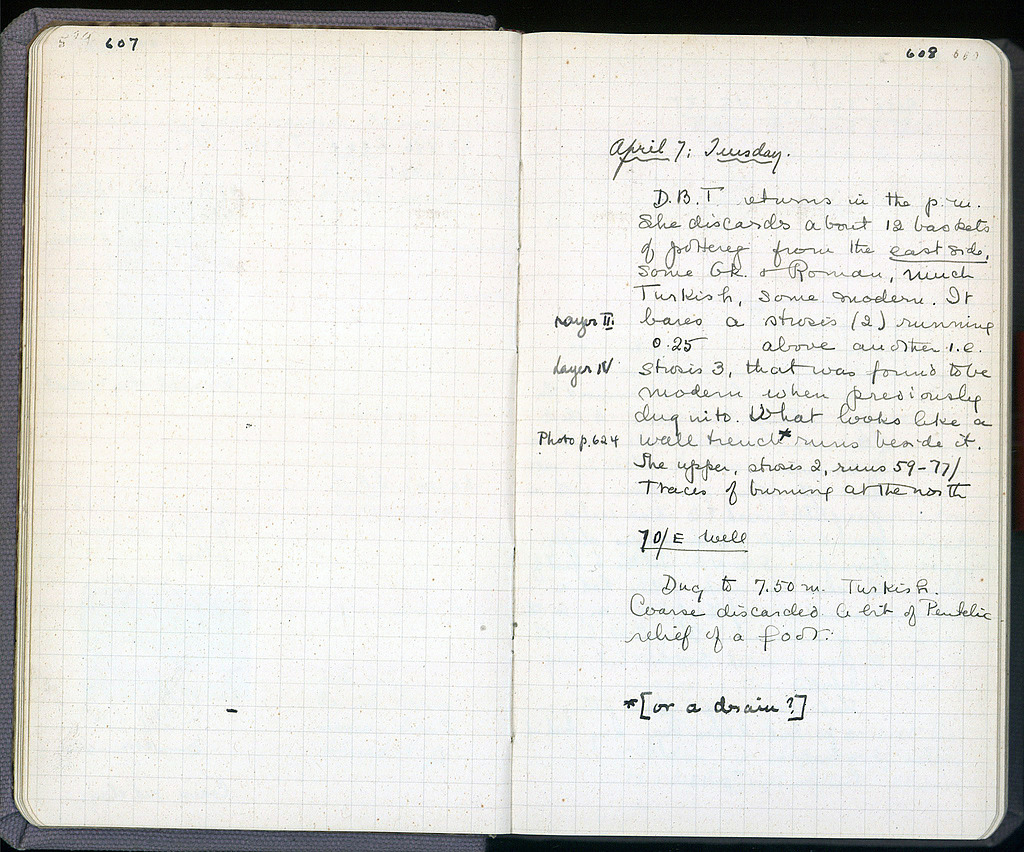 607
608
April 7; Tuesday.
D.B.T returns in the p.m.
She discards about 12 baskets
of pottery from the east side,
some Gk. & Roman, much
Turkish, some modern. It
Layer II. bares a strosis (2) running
0.25 above another i.e.
Layer IV strosis 3, that was found to be
modern when previously
dug into. What looks like a
Photo p. 624 wall trench* runs beside it.
The upper, strosis 2, runs 59-77/
Traces of burning at the north
70/E Well
Dug to 7.50 m. Turkish.
Coarse discarded. A bit of Pentelic
relief of a foot.
*[or a drain?]